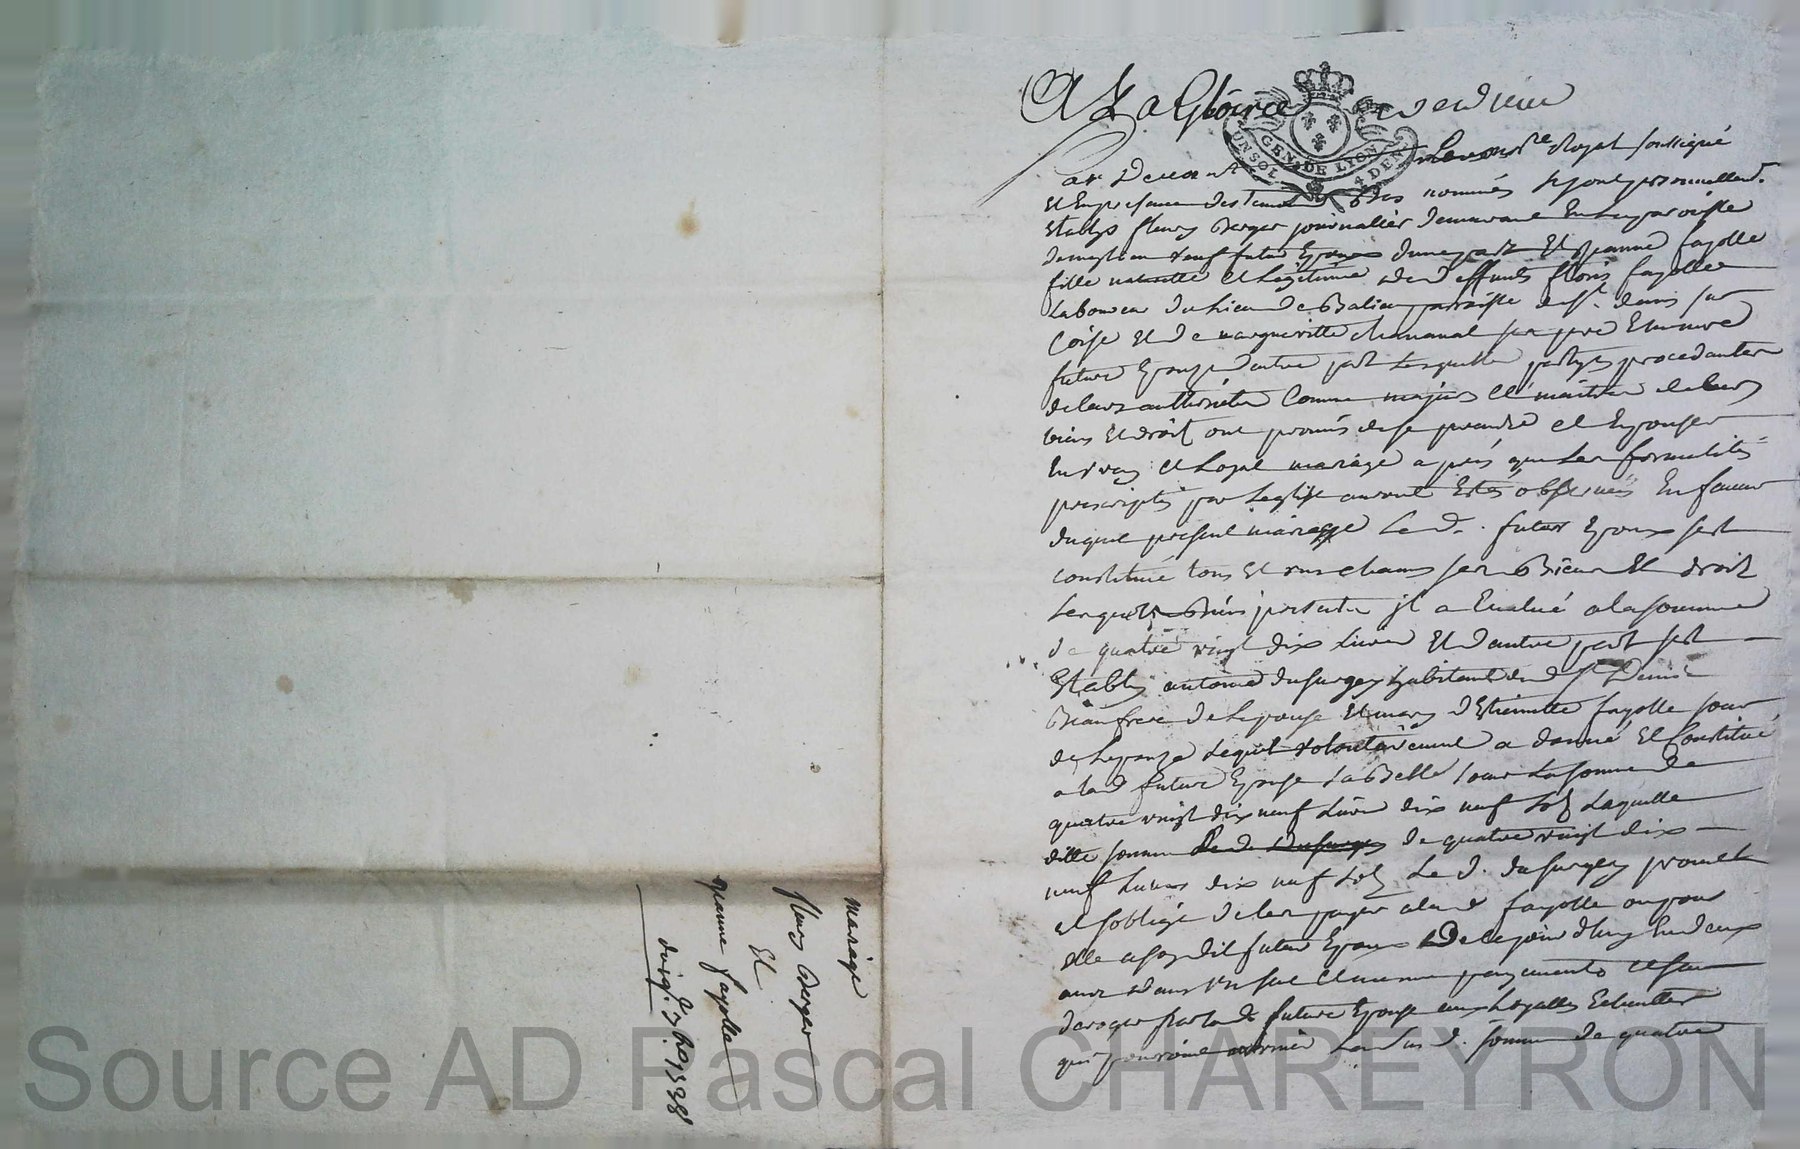 A La Gloire de dieu
GEN. DE LYON
UN SOL 4 DEN.
Par Devant Le no.re Royal soussigné
Et En presence des temoins bas nommés se sont personnellem.t
Establys fleury Berger journallier demeurant En la parroisse
veuf futur Epoux d'une part Et Jeanne fayolle
fille naturelle et Legitime de deffunts floris fayolle
Laboureur du Lieu de parroisse de s.t denis sur
Coise Et de margueritte ses pere Et mere
future Epouse d'autre part Lesquelles partyes procedantes
de leurs authorités Comme majeurs et maitres de leurs
biens Et droit ont promis de se prendre et Epouser
En vray et Loyal mariage apres que Les formalités
prescriptes par Leglise auront Estés observées En faveur
duquel present mariage Le d. futur Epoux sest
constitué tous Et uns chacuns ses Biens Et droit
Lesquels Biens il a Evalué a la somme
de quatre vingt dix Livres Et d'autre part sest
Establis antoine dusurgey habitant du d. s.t Denis
Beaufrere de Lepouse Et mary d'Etiennette fayolle soeur
de Lepouse Lequel volontairement a donné Et Constitué
a la d. future Epouse sa Belle soeur La somme de
quatre vingt dix neuf Livres dix neuf sols Laquelle
ditte somme de quatre vingt dix
neuf Livres dix neuf sols Le d. dusurgey promet
et soblige de les payer a la d. fayolle ou pour
elle a son dit futur Epoux de ce jour d'huy En deux
ans dans un seul Et mesme payement et sans
deroger par la d. future Epouse aux Loyalles Echuttes
qui pourroient arriver La dus d. somme de quatre
mariage
fleury Berger
Et
jeanne fayolle
du 19.e 7bre 1738
Source AD Pascal CHAREYRON